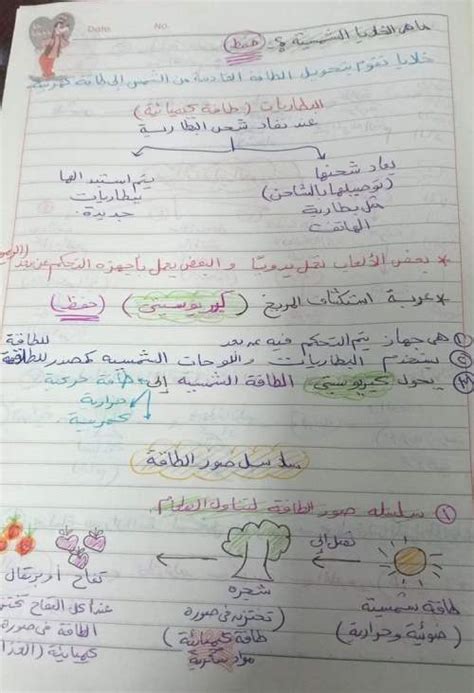 Date No.
ما هي الخلايا الشمسية ؟ (حفظ)
خلايا تقوم بتحويل الطاقة القادمة من الشمس إلى طاقة كهربية
البطاريات (طاقة كيميائية)
عند نفاد شحن البطارية
يعاد شحنها
(توصيلها بالشاحن)
مثل بطارية
الهاتف
يتم استبدالها
ببطاريات
جديدة
* بعض الألعاب تعمل يدويًا والبعض يعمل بأجهزة التحكم عن بعد
* عربة استكشاف المريخ (كيريوسيتى) (حفظ)
① هي جهاز يتم التحكم فيه عن بعد
② يستخدم البطاريات واللوحات الشمسية كمصدر للطاقة
③ يحول كيريوسيتى الطاقة الشمسية إلى طاقة حركية
حرارية
كهربية
سلاسل صور الطاقة
① سلسلة صور الطاقة لتناول الطعام
تصل إلى
طاقة شمسية
(ضوئية وحرارية)
شجرة
(تختزنه في صورة
طاقة كيميائية)
مواد سكرية
تفاح أو برتقال
عند أكل التفاح
الطاقة في صورة
كيميائية